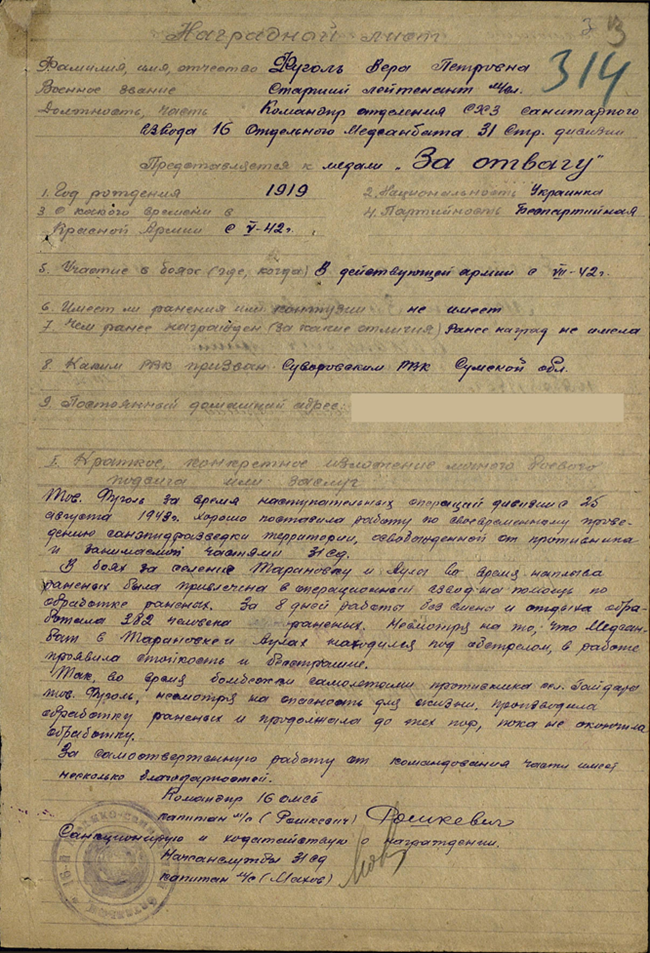 Наградной лист
Фамилия, имя, отчество Фуголь Вера Петровна
314
Военное звание Старший лейтенант м/сл.
Должность, часть Командир отделения СХЗ санитарного
взвода 16 Отдельного Медсанбата 31 Стр. дивизии
Представляется к медали „За отвагу"
1. Год рождения 1919 2. Национальность Украинка
3 С какого времени в 4. Партийность Беспартийная
Красной Армии с V-42 г.
5. Участие в боях (где, когда) В действующей армии с VII-42 г.
6. Имеет ли ранения или контузии не имеет
7. Чем ранее награжден (за какие отличия) Ранее наград не имела
8. Каким РВК призван Суворовским РВК Сумской обл.
9. Постоянный домашний адрес:
I. Краткое, конкретное изложение личного боевого
подвига или заслуг
Тов. Фуголь за время наступательных операций дивизии с 25
августа 1943 г. хорошо поставила работу по своевременному прове-
дению санэпидразведки территории, освобожденной от противника
и занимаемой частями 31 сд.
В боях за селения Тарановку и во время наплыва
раненых была привлечена в операционный взвод на помощь по
обработке раненых. За 8 дней работы без смены и отдыха обра-
ботала 282 человека раненых. Несмотря на то, что Медсан-
бат в Тарановке и находился под обстрелом, в работе
проявила стойкость и бесстрашие.
Так, во время бомбежки самолетами противника Гайдары
тов. Фуголь, несмотря на опасность для жизни, производила
обработку раненых и продолжала до тех пор, пока не окончила
обработку.
За самоотверженную работу от командования части имеет
несколько благодарностей.
Командир 16 омсб
капитан м/с (Рошкевич) Рошкевич
Санкционирую и ходатайствую о награждении.
Начсанслужбы 31 сд
капитан м/с (Махов)